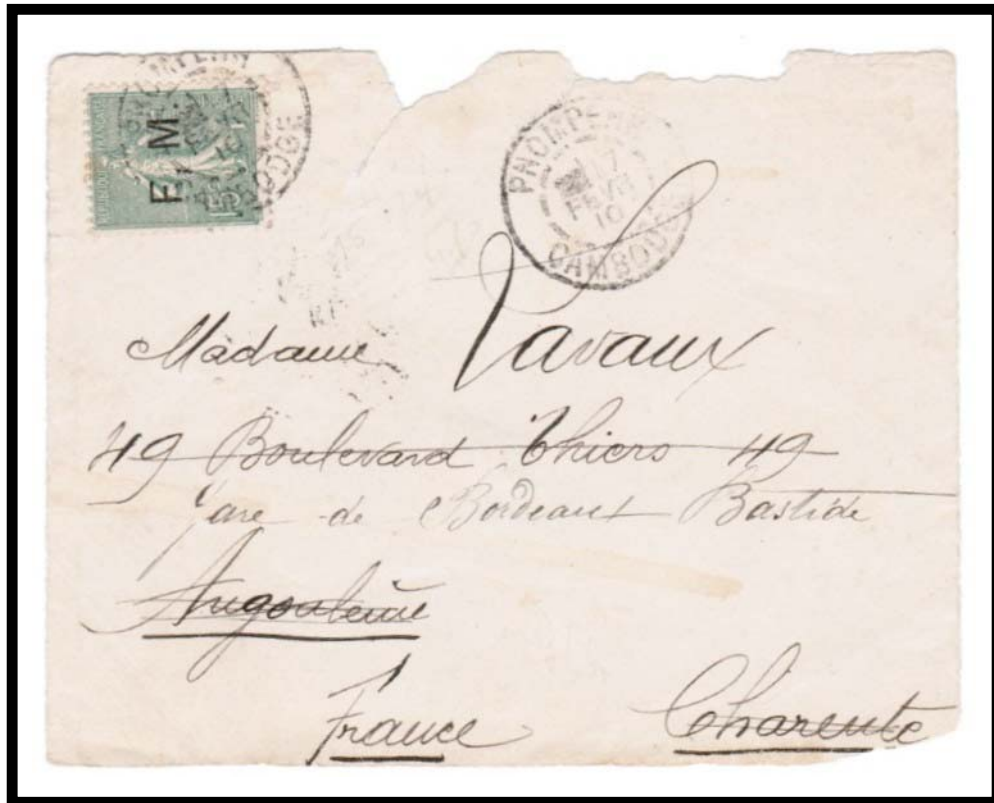 F. M.
PNOMPENH
17
FEVR
10
CAMBODGE
Madame Lavaux
49 Boulevard Thiers 49
Gare de Bordeaux Bastide
Angoulême
France Charente